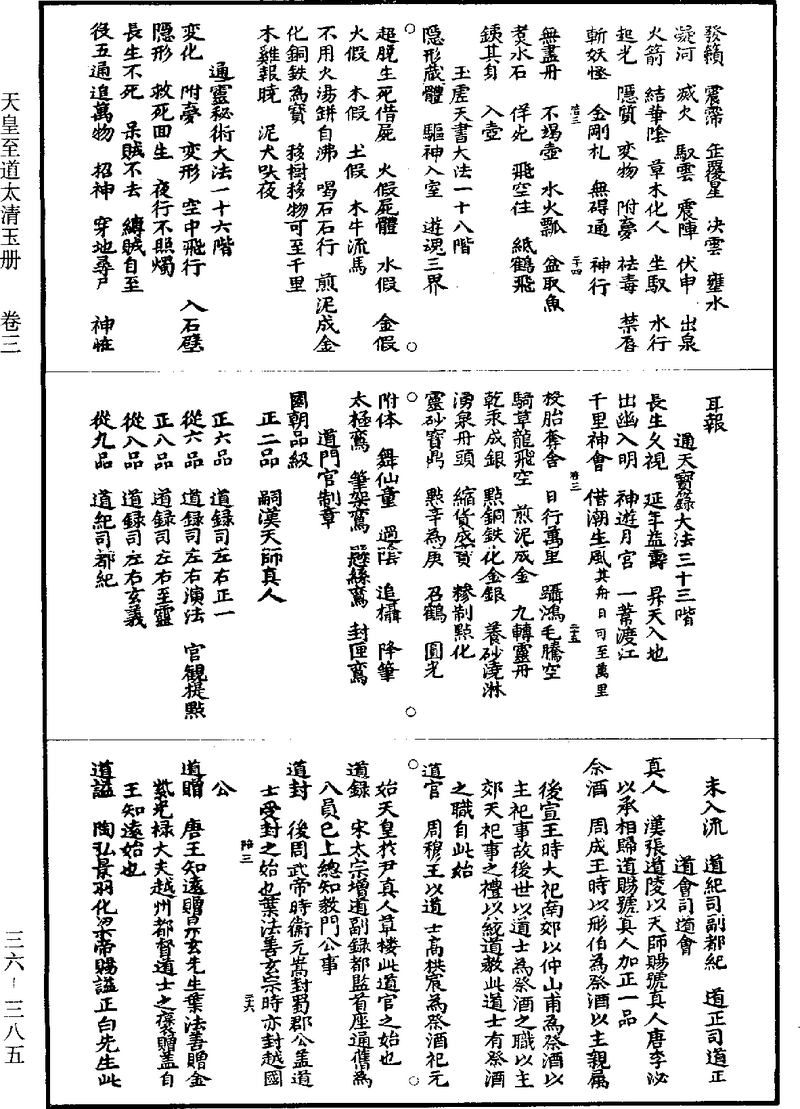 天皇至道太清玉册 卷三
三六－三八五
發籟 震霈 正覆星 决雲 壅水
凝河 滅火 馭雲 震陣 伏申 出泉
火箭 結華陰 草木化人 坐馭 水行
起光 隱質 变物 附夢 祛毒 禁唇
斬妖怪 金剛札 無碍通 神行
無盡舟 不竭壺 水火瓢 盆取魚
煑水石 佯死 飛空住 紙鶴飛
錢其自 入壺
玉虗天書大法一十八階
隐形蔵體 驅神入室 遊魂三界
超脫生死借屍 火假屍體 水假 金假
火假 木假 土假 木牛流馬
不用火湯缾自沸 喝石石行 煎泥成金
化銅鉄為寳 移樹移物可至千里
木雞報曉 泥犬吠夜
通靈秘術大法一十六階
变化 附夢 变形 空中飛行 入石壁
隱形 救死回生 夜行不照燭
長生不死 呆賊不去 縛賊自至
役五通追萬物 招神 穿地尋尸 神性
耳報
通天寳籙大法三十三階
長生久視 延年益壽 昇天入地
出幽入明 神遊月宮 一葦渡江
千里神會 借潮生風其舟日可至萬里
投胎奪舍 日行萬里 躡鴻毛騰空
騎草龍飛空 煎泥成金 九轉靈丹
乾汞成銀 點銅鉄化金銀 養砂澆淋
湧泉丹頭 縮貨盛寳 糝制點化
靈砂寳鼎 點辛為庚 召鶴 圓光
附体 舞仙童 過陰 追攝 降筆
太極鸞 筆架鸞 懸絲鸞 封匣鸞
道門官制章
國朝品級
正二品 嗣漢天師真人
正六品 道録司左右正一
從六品 道録司左右演法 官觀提點
正八品 道録司左右至靈
從八品 道録司左右玄義
從九品 道紀司都紀
未入流 道紀司副都紀 道正司道正
道會司道會
真人 漢張道陵以天師賜號真人唐李泌
以承相歸道賜號真人加正一品
祭酒 周成王時以彤伯為祭酒以主親属
後宣王時大祀南郊以仲山甫為祭酒以
主祀事故後世以道士為祭酒之職以主
郊天祀事之禮以統道教此道士有祭酒
之職自此始
道官 周穆王以道士高栱宸為祭酒祀元
始天皇扵尹真人草楼此道官之始也
道録 宋太宗增道副録都監首座通舊為
八員已上總知教門公事
道封 後周武帝時衛元嵩封蜀郡公盖道
士受封之始也葉法善玄宗時亦封越國
公
道贈 唐王知遠贈昇玄先生葉法善贈金
紫光禄大夫越州都督道士之褒贈盖自
王知遠始也
道謚 陶弘景羽化梁帝賜謚正白先生此